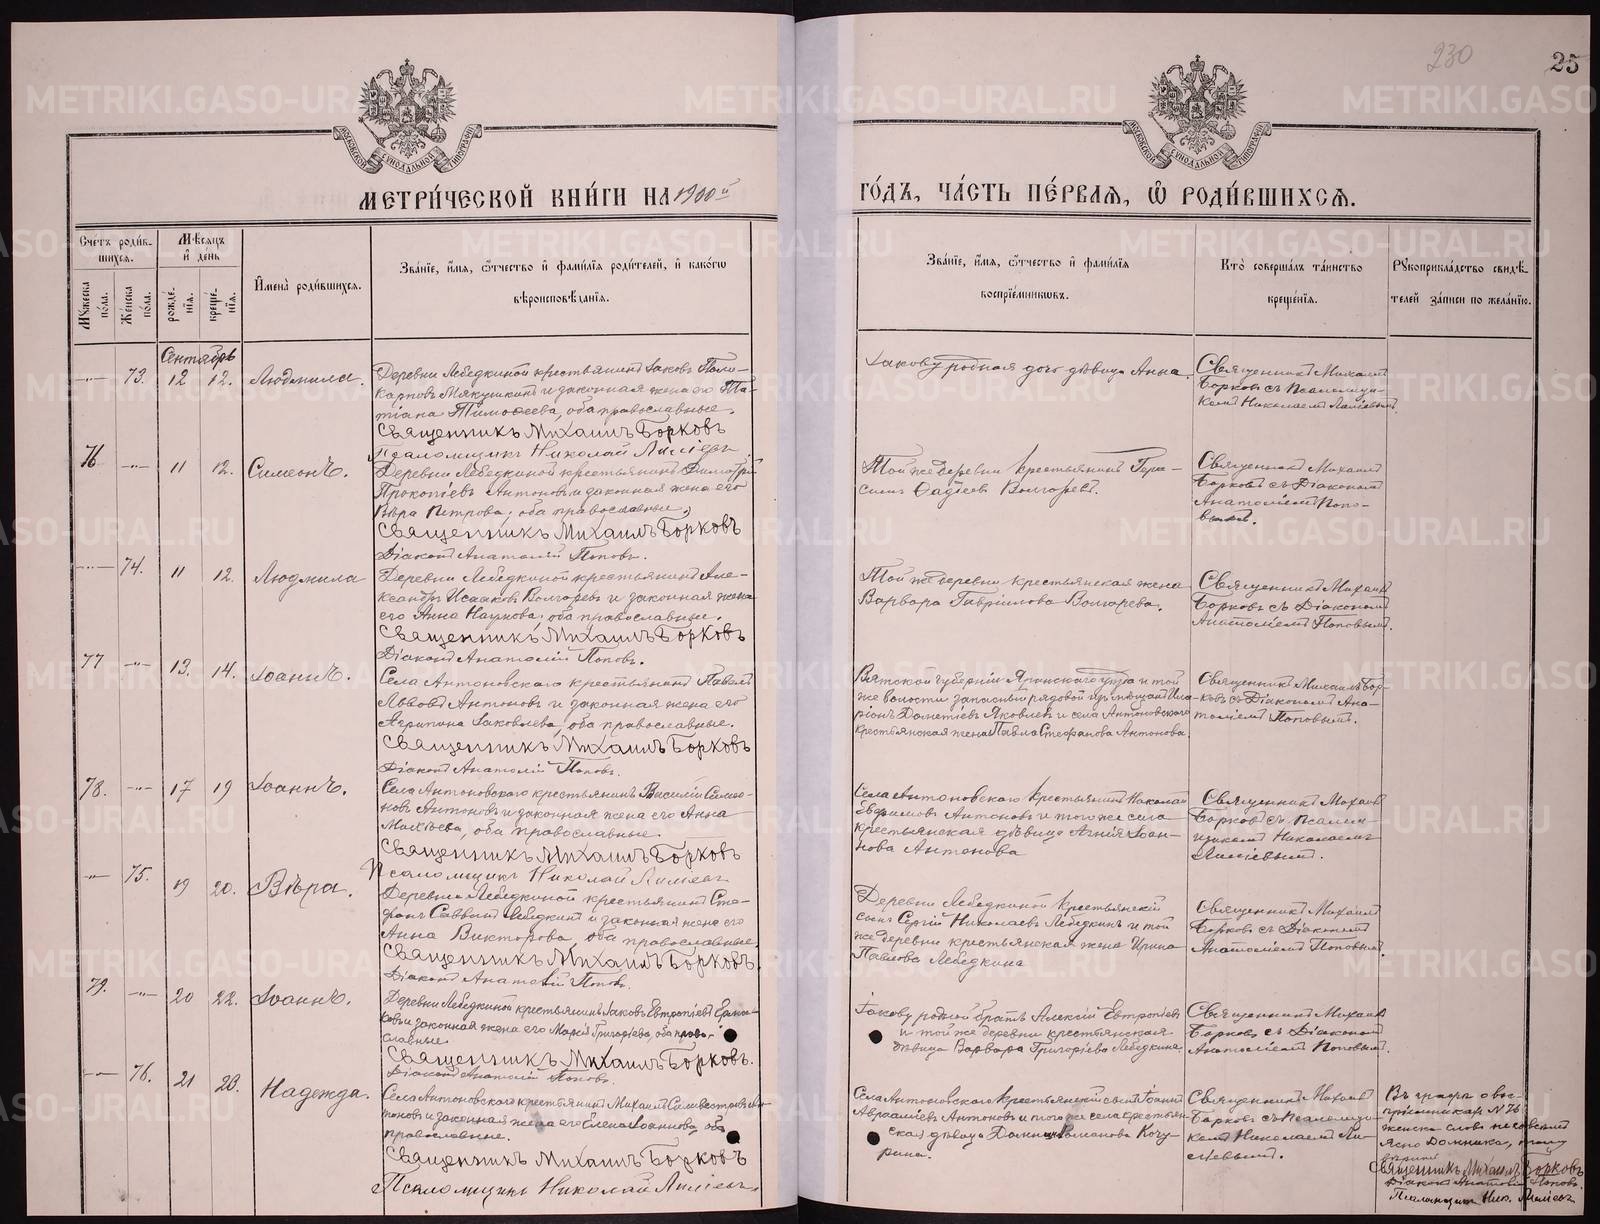 230
25
МОСКОВСКОЙ СУНОДАЛЬНОЙ ТИПОГРАФІИ
МОСКОВСКОЙ СУНОДАЛЬНОЙ ТИПОГРАФІИ
МЕТРИ́ЧЕСКОЙ КНИ́ГИ НА 1900й
ГО́ДЪ, ЧА́СТЬ ПЕ́РВАЯ, Ѡ РОДИ́ВШИХСЯ.
Счетъ роди́в-
шихся.
Мужеска
по́ла.
Же́нска
по́ла.
Мѣсяцъ
и де́нь
рожде́-
нїя.
креще́-
нїя.
Имена̀ роди́вшихся.
Зва́нїе, и́мя, ѻ́тчество и фами́лїя роди́телей, и како́гѡ
вѣроисповѣ́данїя.
Зва́нїе, и́мя, ѻ́тчество и фами́лїя
воспрїе́мникѡвъ.
Кто̀ соверша́лъ та́инство
креще́нїя.
Рукоприкла́дство свидѣ́-
телей за́писи по жела́нїю.
Сентябрь
73. 12 12. Людмила.
Деревни Лебедкиной крестьянинъ Іаковъ Поли-
карповъ Мякушкинъ и законная жена его Та-
тіана Тимоѳеева, оба православные.
Священникъ Михаилъ Борковъ
Псаломщикъ Николай
Іакову родная дочь дѣвица Анна.
Священникъ Михаилъ
Борковъ съ Псаломщи-
комъ Николаемъ
76 11 12. Симеонъ.
Деревни Лебедкиной крестьянинъ Димитрій
Прокопіевъ Антоновъ и законная жена его
Вѣра Петрова, оба православные.
Священникъ Михаилъ Борковъ
Діаконъ Анатолій Поповъ.
Той же деревни крестьянинъ Гера-
симъ Фадѣевъ Волгоревъ.
Священникъ Михаилъ
Борковъ съ Діакономъ
Анатоліемъ Попо-
вымъ.
74. 11 12. Людмила
Деревни Лебедкиной крестьянинъ Але-
ксандръ Исааковъ Волгоревъ и законная жена
его Анна Наумова, оба православные.
Священникъ Михаилъ Борковъ
Діаконъ Анатолій Поповъ.
Той же деревни крестьянская жена
Варвара Гавріилова Волгорева.
Священникъ Михаилъ
Борковъ съ Діакономъ
Анатоліемъ Поповымъ.
77 13. 14. Іоаннъ.
Села Антоновскаго крестьянинъ Павелъ
Львовъ Антоновъ и законная жена его
Агрипина Іаковлева, оба православные.
Священникъ Михаилъ Борковъ
Діаконъ Анатолій Поповъ.
Вятской губерніи Яранскаго уѣзда и той
же волости запасный рядовой изъ мѣщанъ Ила-
ріонъ Дометіевъ Яковлевъ и села Антоновскаго
крестьянская жена Павла Стефанова Антонова.
Священникъ Михаилъ Бор-
ковъ съ Діакономъ Ана-
толіемъ Поповымъ.
78. 17 19 Іоаннъ.
Села Антоновскаго крестьянинъ Василій Симео-
новъ Антоновъ и законная жена его Анна
Моисѣева, оба православные.
Священникъ Михаилъ Борковъ
Псаломщикъ Николай
Села Антоновскаго крестьянинъ Николай
Евфимовъ Антоновъ и того же села
крестьянская дѣвица Агнія Іоан-
нова Антонова
Священникъ Михаилъ
Борковъ съ Псалом-
щикомъ Николаемъ
75. 19 20. Вѣра.
Деревни Лебедкиной крестьянинъ Сте-
фанъ Саввинъ Лебедкинъ и законная жена его
Анна Викторова, оба православные.
Священникъ Михаилъ Борковъ.
Діаконъ Анатолій Поповъ.
Деревни Лебедкиной крестьянскій
сынъ Сергій Николаевъ Лебедкинъ и той
же деревни крестьянская жена Ирина
Павлова Лебедкина
Священникъ Михаилъ
Борковъ съ Діакономъ
Анатоліемъ Поповымъ.
79. 20 22. Іоаннъ.
Деревни Лебедкиной крестьянинъ Іаковъ Евтропіевъ
и законная жена его Марія Григоріева, оба право-
славные.
Священникъ Михаилъ Борковъ.
Діаконъ Анатолій Поповъ.
Іакову родной братъ Алексій Евтропіевъ
и той же деревни крестьянская
дѣвица Варвара Григоріева Лебедкина.
Священникъ Михаилъ
Борковъ съ Діакономъ
Анатоліемъ Поповымъ.
76. 21 23. Надежда.
Села Антоновскаго крестьянинъ Михаилъ Сильвестровъ Ан-
тоновъ и законная жена его Елена Іоаннова, оба
православные.
Священникъ Михаилъ Борковъ
Псаломщикъ Николай
Села Антоновскаго крестьянскій сынъ Іоаннъ
Авраамовъ Антоновъ и того же села крестьян-
ская дѣвица Домника Романова Кочу-
рина.
Священникъ Михаилъ
Борковъ съ Псаломщи-
комъ Николаемъ
Въ графѣ о вос-
пріемникахъ N 76
женска слово не совсѣмъ
ясно Домника, тому
вѣрить
Священникъ Михаилъ Борковъ
Діаконъ Анатолій Поповъ.
Псаломщикъ Ник.
METRIKI.GASO-URAL.RU